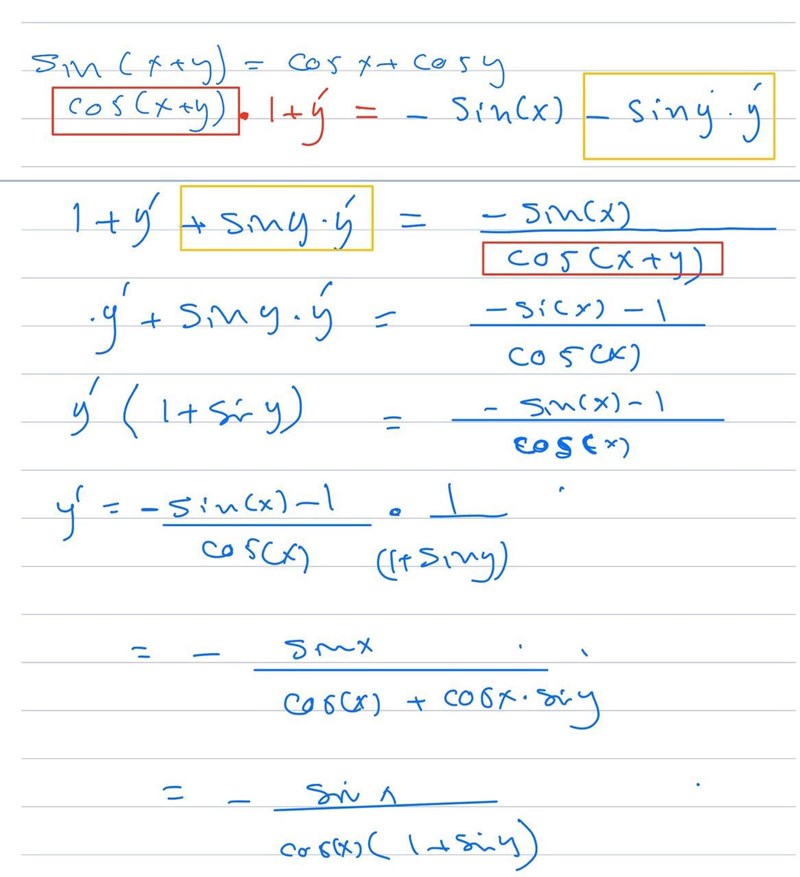 sin (x+y) = cos x + cos y
cos(x+y) · 1+y' = - sin(x) - sin y · y'
1 + y' + sin y · y' = - sin(x) / cos(x+y)
· y' + sin y · y' = -si(x) - 1 / cos(x)
y' ( 1 + sin y) = - sin(x) - 1 / cos(x)
y' = - sin(x) - 1 / cos(x) · 1 / (1+ sin y)
= - sin x / cos(x) + cos x · sin y
= - sin x / cos(x) ( 1 + sin y)